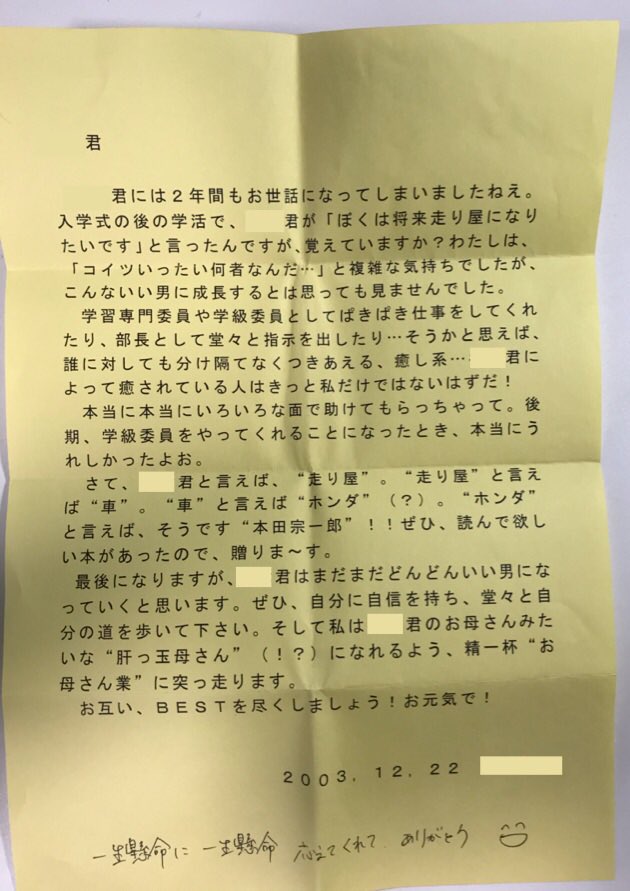 君
君には２年間もお世話になってしまいましたねえ。
入学式の後の学活で、君が「ぼくは将来走り屋になり
たいです」と言ったんですが、覚えていますか？わたしは、
「コイツいったい何者なんだ…」と複雑な気持ちでしたが、
こんないい男に成長するとは思っても見ませんでした。
学習専門委員や学級委員としてぱきぱき仕事をしてくれ
たり、部長として堂々と指示を出したり…そうかと思えば、
誰に対しても分け隔てなくつきあえる、癒し系…君に
よって癒されている人はきっと私だけではないはずだ！
本当に本当にいろいろな面で助けてもらっちゃって。後
期、学級委員をやってくれることになったとき、本当にう
れしかったよお。
さて、君と言えば、“走り屋”。“走り屋”と言え
ば“車”。“車”と言えば“ホンダ”（？）。“ホンダ”
と言えば、そうです“本田宗一郎”！！ぜひ、読んで欲し
い本があったので、贈りま〜す。
最後になりますが、君はまだまだどんどんいい男にな
っていくと思います。ぜひ、自分に自信を持ち、堂々と自
分の道を歩いて下さい。そして私は君のお母さんみた
いな“肝っ玉母さん”（！？）になれるよう、精一杯“お
母さん業”に突っ走ります。
お互い、ＢＥＳＴを尽くしましょう！お元気で！
２００３．１２．２２
一生懸命に 一生懸命 応えてくれて ありがとう